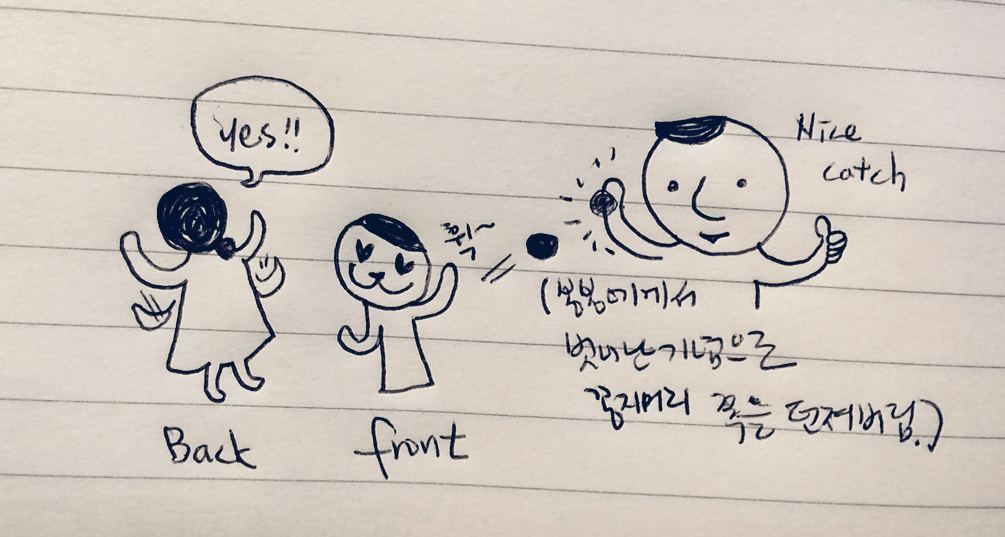 yes!!
Back
front
휙~
Nice
catch
(봉봉이에게서
벗어난 기념으로
꽁지머리 쪽을 던져버림.)